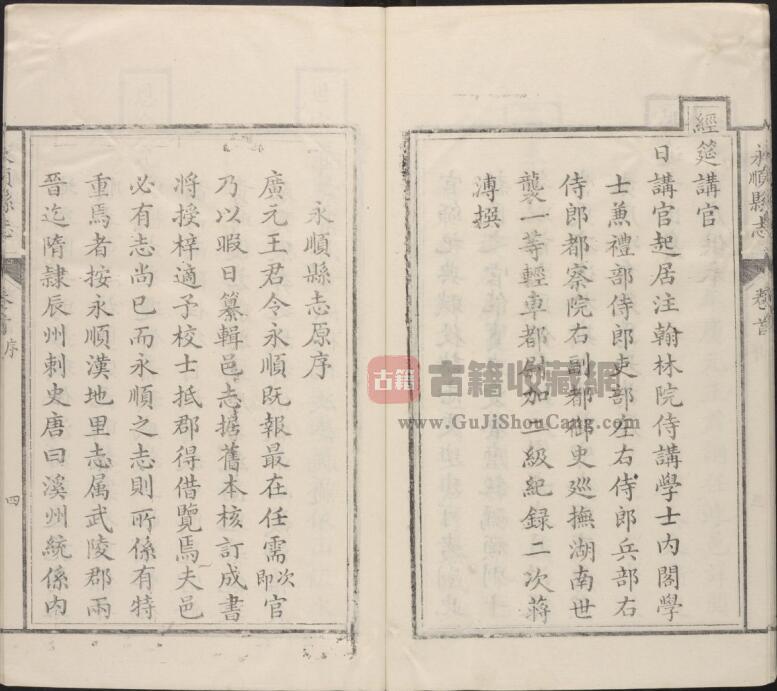 永順縣志
卷首
經筵講官
日講官起居注翰林院侍講學士內閣學
士兼禮部侍郎吏部左右侍郎兵部右
侍郎都察院右副都御史巡撫湖南世
襲一等輕車都尉加二級紀錄二次蔣
溥撰
永順縣志原序
廣元王君令永順既報最在任需次即官
乃以暇日纂輯邑志據舊本核訂成書
將授梓適予校士抵郡得借覽焉夫邑
必有志尚已而永順之志則所係有特
重焉者按永順漢地里志属武陵郡兩
晉迄隋隷辰州刺史唐曰溪州統係內
永順縣志
卷首
序
四
古籍
古籍收藏網
www.GuJiShouCang.com